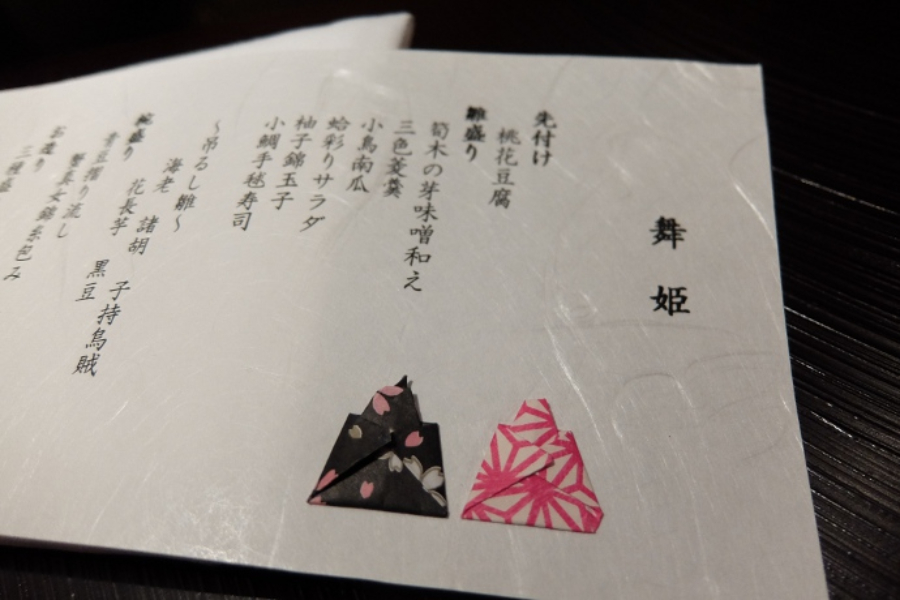 舞姫
先付け
桃花豆腐
雛盛り
筍木の芽味噌和え
三色菱羹
小鳥南瓜
蛤彩りサラダ
柚子錦玉子
小鯛手毬寿司
~吊るし雛~
海老 諸胡 子持烏賊
花長芋 黒豆
椀盛り
青豆摺り流し
蟹真女錦糸包み
お造り
三種盛